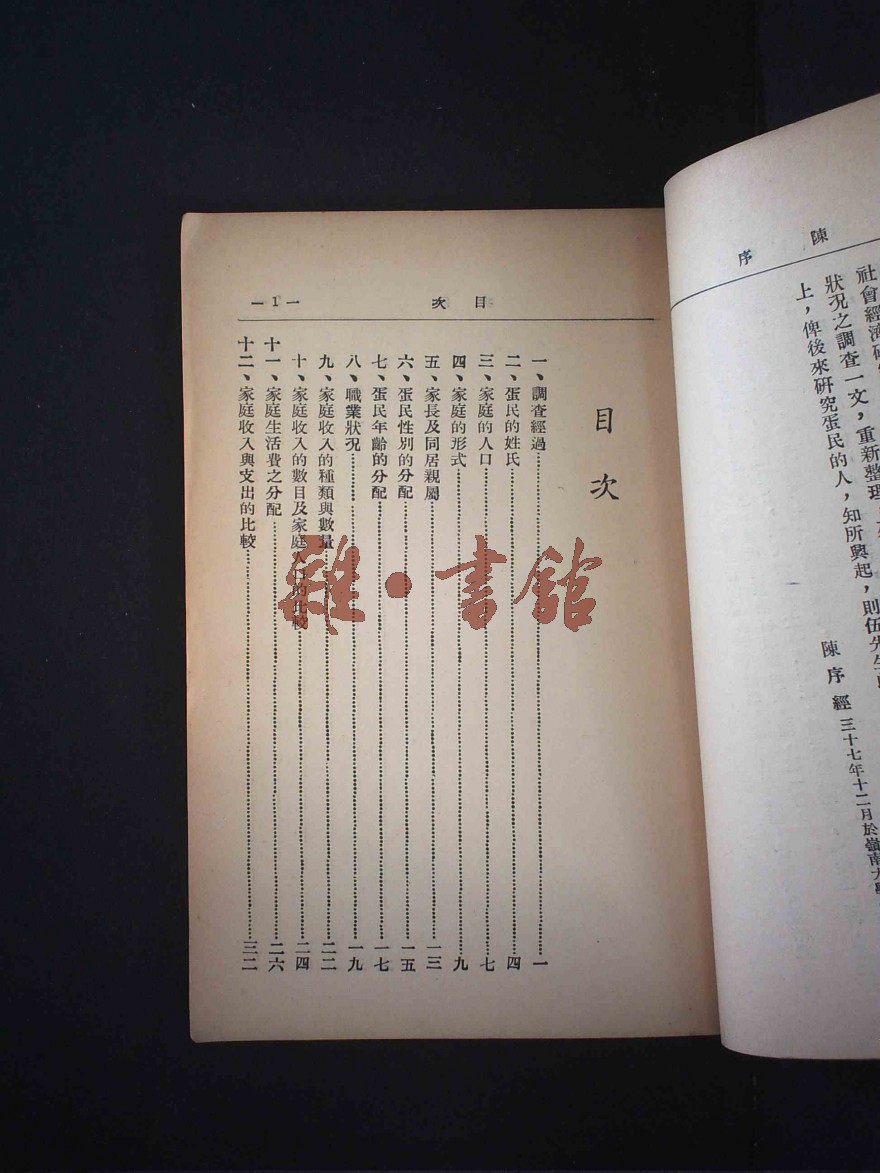 陳序
社會經濟研
狀況之調查一文，重新整理
上，俾後來研究蛋民的人，知所興起，則伍先生
陳序經 三十七年十二月於嶺南大學
目次
—1—
目次
一、調查經過……一
二、蛋民的姓氏……四
三、家庭的人口……七
四、家庭的形式……九
五、家長及同居親屬……一三
六、蛋民性別的分配……一五
七、蛋民年齡的分配……一七
八、職業狀況……一九
九、家庭收入的種類與數量……二二
十、家庭收入的數目及家庭人口的比較……二四
十一、家庭生活費之分配……二六
十二、家庭收入與支出的比較……三二
雜·書館